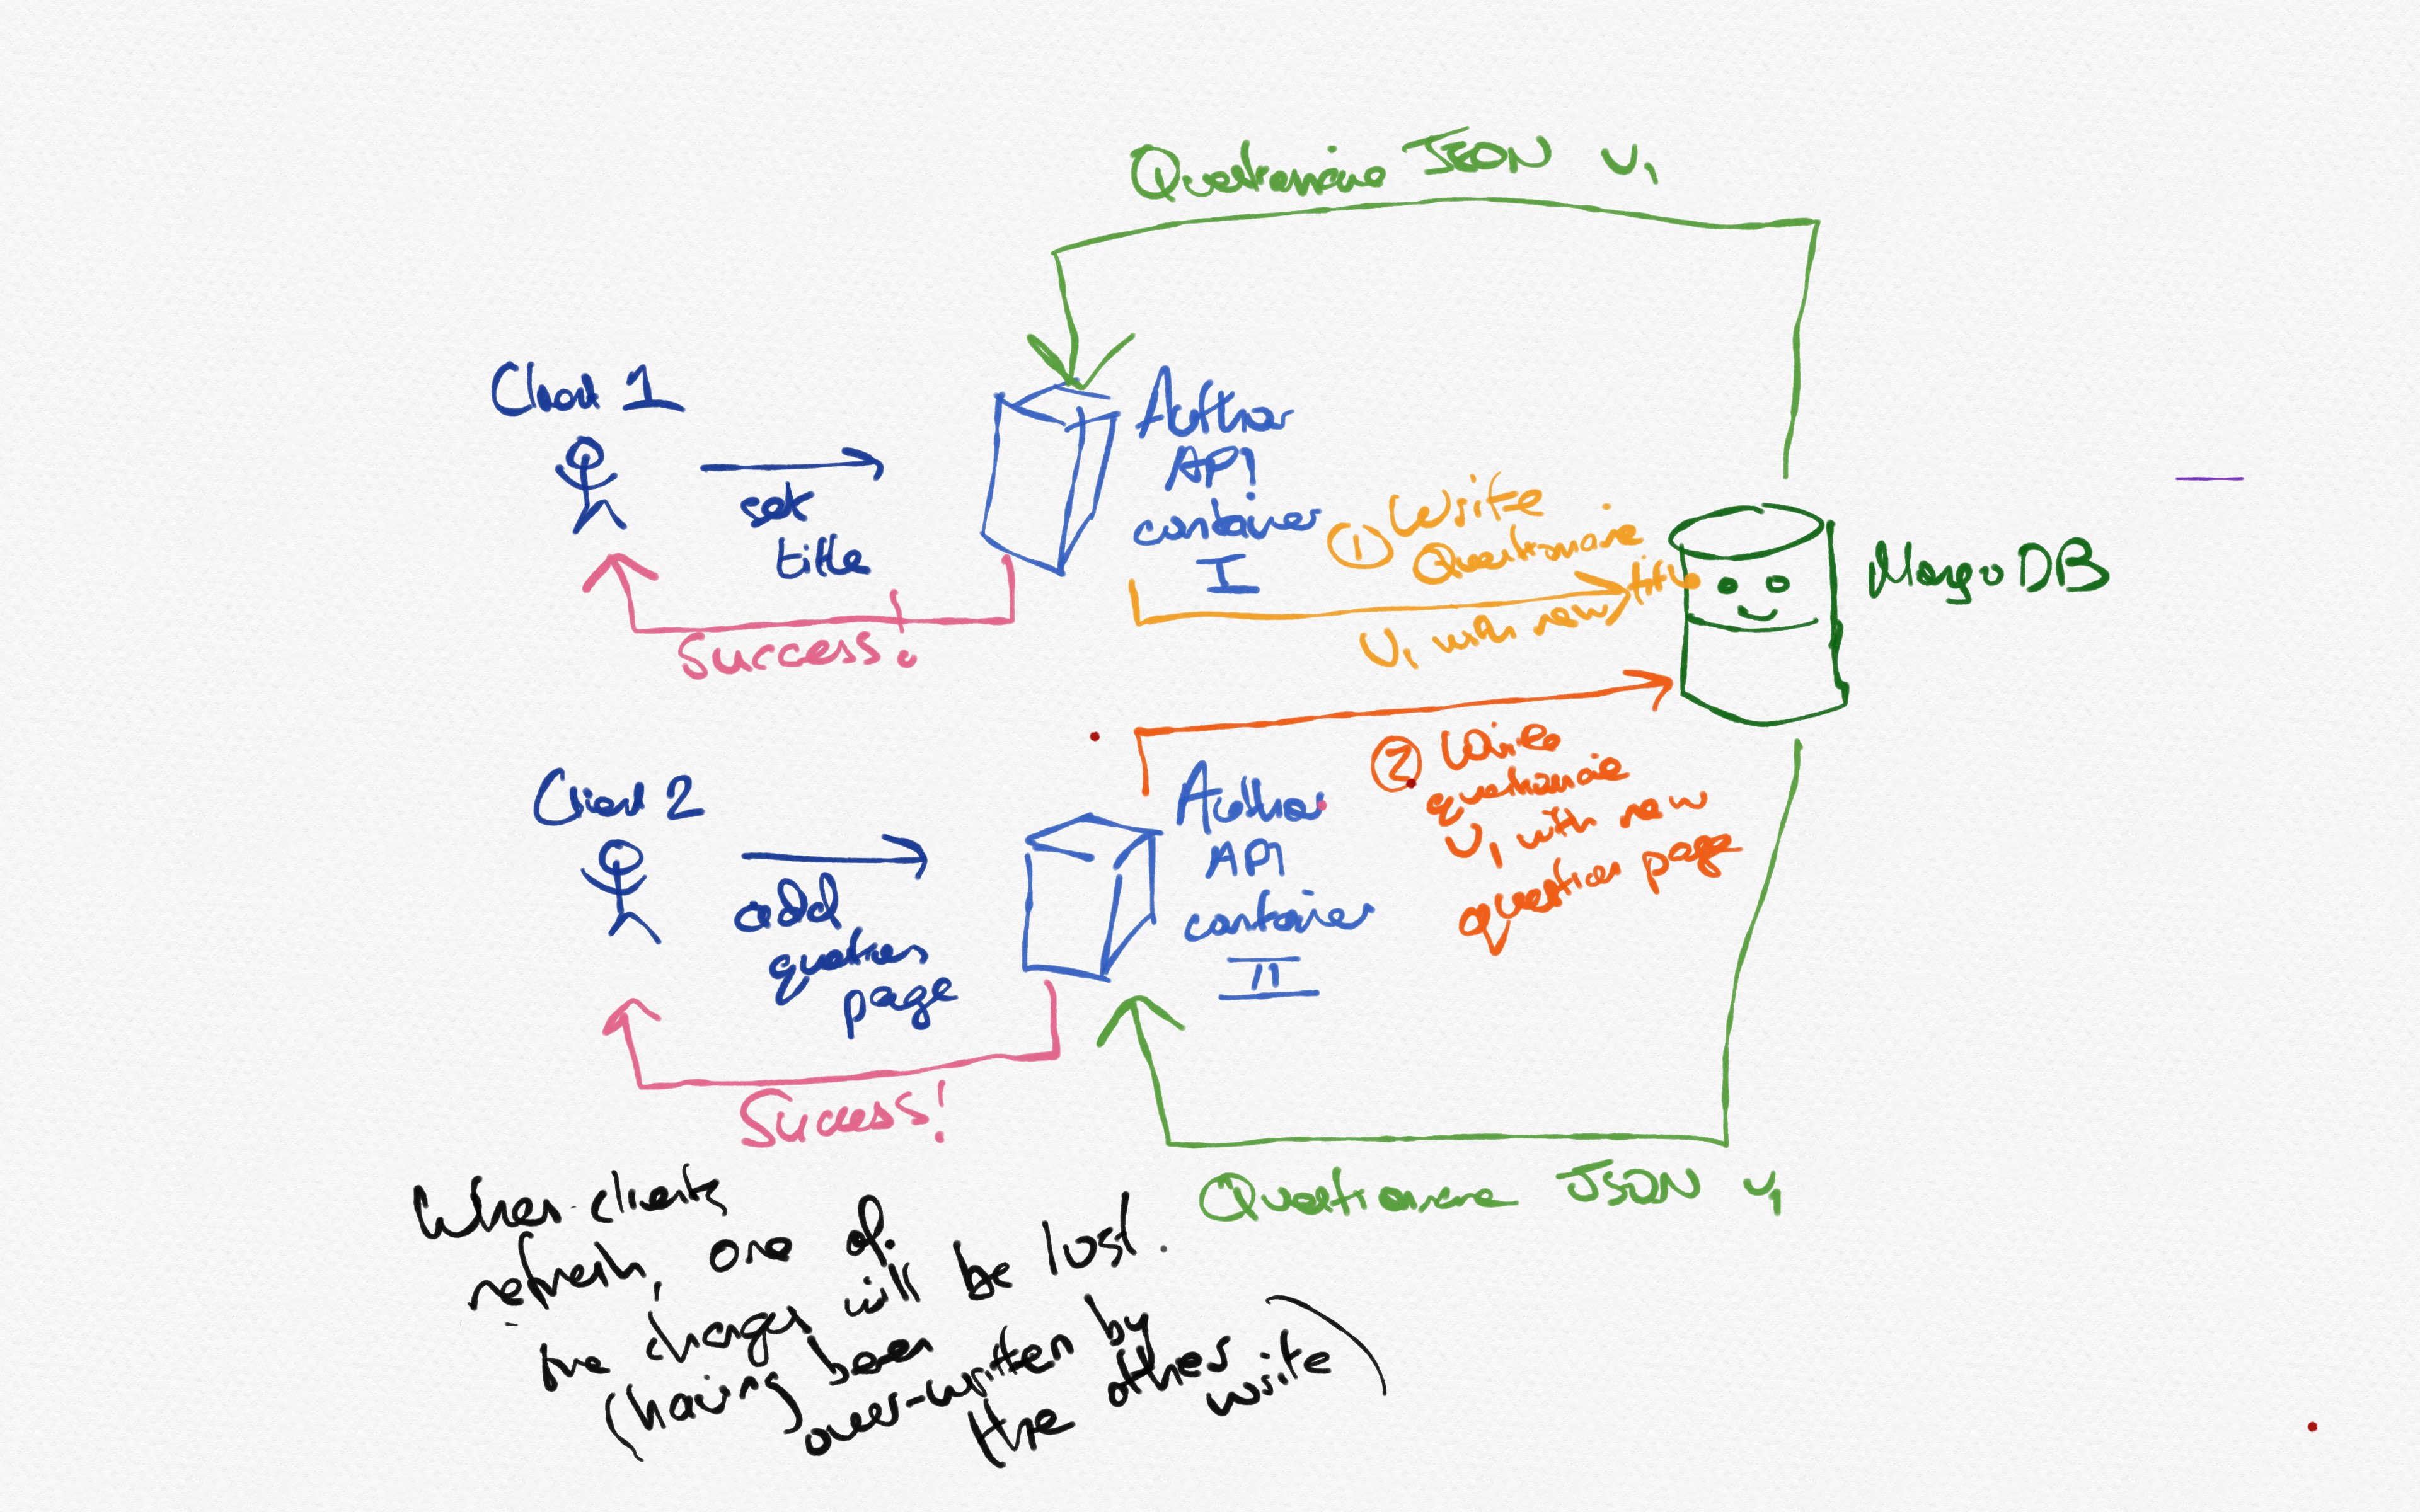 Questionnaire JSON V1
Client 1
set
title
Success!
Author
API
container
I
① Write
Questionnaire
V1 with new title
MongoDB
Client 2
add
question
page
Success!
Author
API
container
II
② Write
questionnaire
V1 with new
question page
Questionnaire JSON V1
When clients
refresh, one of
the changes will be lost.
(having been
over-written by
the other
write)